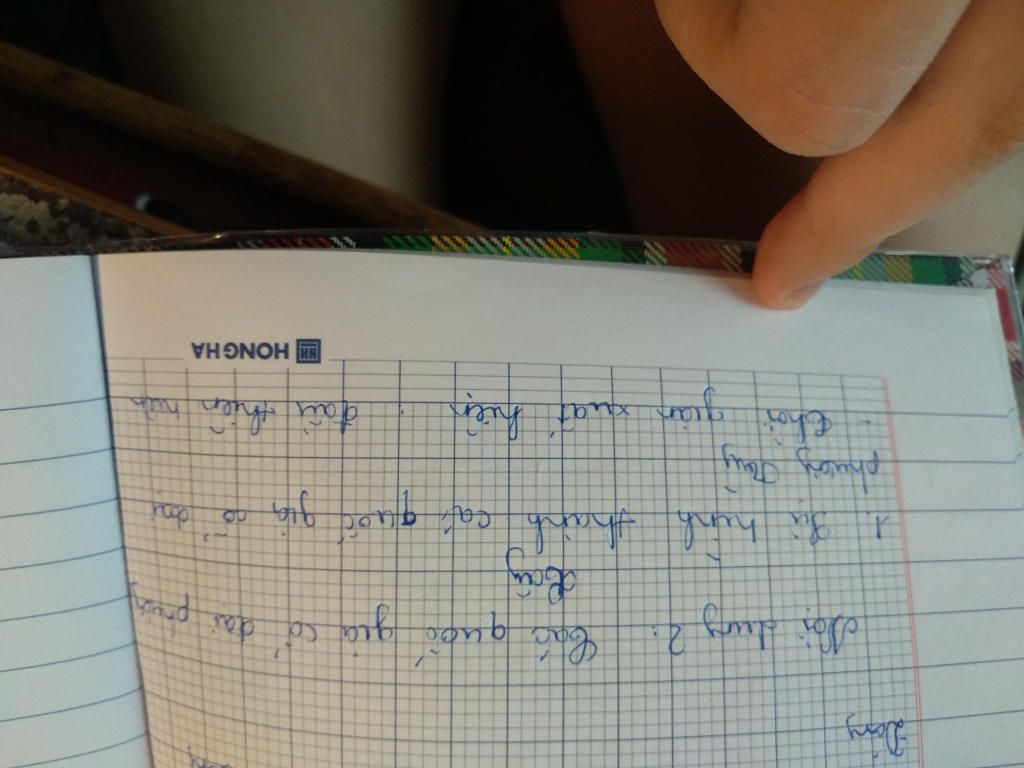 Đông
Nội dung 2: Các quốc gia cổ đại phương
Tây
1. Sự hình thành các quốc gia cổ đại
phương Tây
- Thời gian xuất hiện : đầu thiên niên
HONG HA